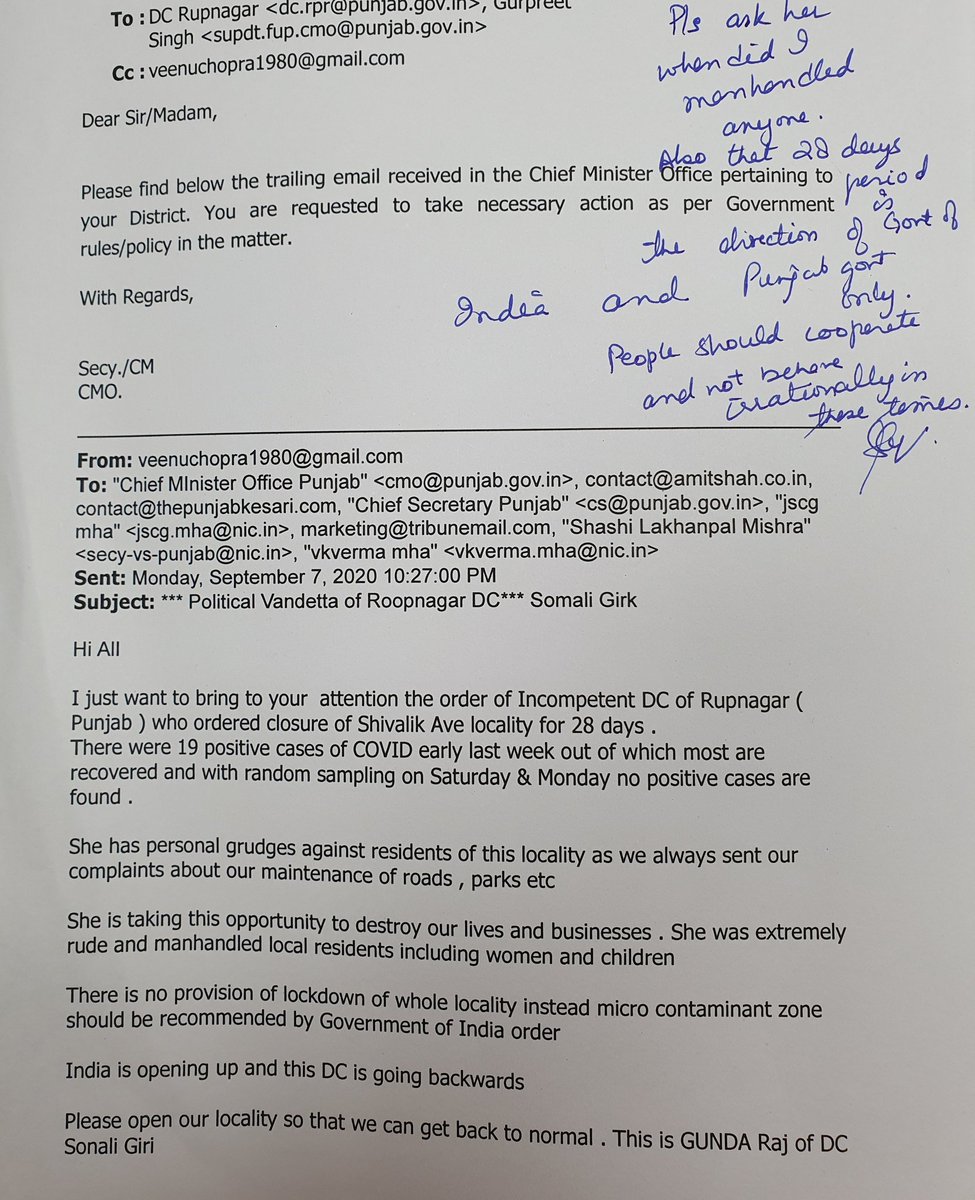 To : DC Rupnagar <dc.rpr@punjab.gov.in>, Gurpreet
Singh <supdt.fup.cmo@punjab.gov.in>
Cc : veenuchopra1980@gmail.com
Pls ask her
when did I
manhandled
anyone.
Also that 28 days
period
is
the direction of Govt of
India and Punjab govt
only.
People should cooperate
and not behave
irrationally in
these times.
Dear Sir/Madam,
Please find below the trailing email received in the Chief Minister Office pertaining to
your District. You are requested to take necessary action as per Government
rules/policy in the matter.
With Regards,
Secy./CM
CMO.
From: veenuchopra1980@gmail.com
To: "Chief MInister Office Punjab" <cmo@punjab.gov.in>, contact@amitshah.co.in,
contact@thepunjabkesari.com, "Chief Secretary Punjab" <cs@punjab.gov.in>, "jscg
mha" <jscg.mha@nic.in>, marketing@tribunemail.com, "Shashi Lakhanpal Mishra"
<secy-vs-punjab@nic.in>, "vkverma mha" <vkverma.mha@nic.in>
Sent: Monday, September 7, 2020 10:27:00 PM
Subject: *** Political Vandetta of Roopnagar DC*** Somali Girk
Hi All
I just want to bring to your attention the order of Incompetent DC of Rupnagar (
Punjab ) who ordered closure of Shivalik Ave locality for 28 days .
There were 19 positive cases of COVID early last week out of which most are
recovered and with random sampling on Saturday & Monday no positive cases are
found .
She has personal grudges against residents of this locality as we always sent our
complaints about our maintenance of roads , parks etc
She is taking this opportunity to destroy our lives and businesses . She was extremely
rude and manhandled local residents including women and children
There is no provision of lockdown of whole locality instead micro contaminant zone
should be recommended by Government of India order
India is opening up and this DC is going backwards
Please open our locality so that we can get back to normal . This is GUNDA Raj of DC
Sonali Giri